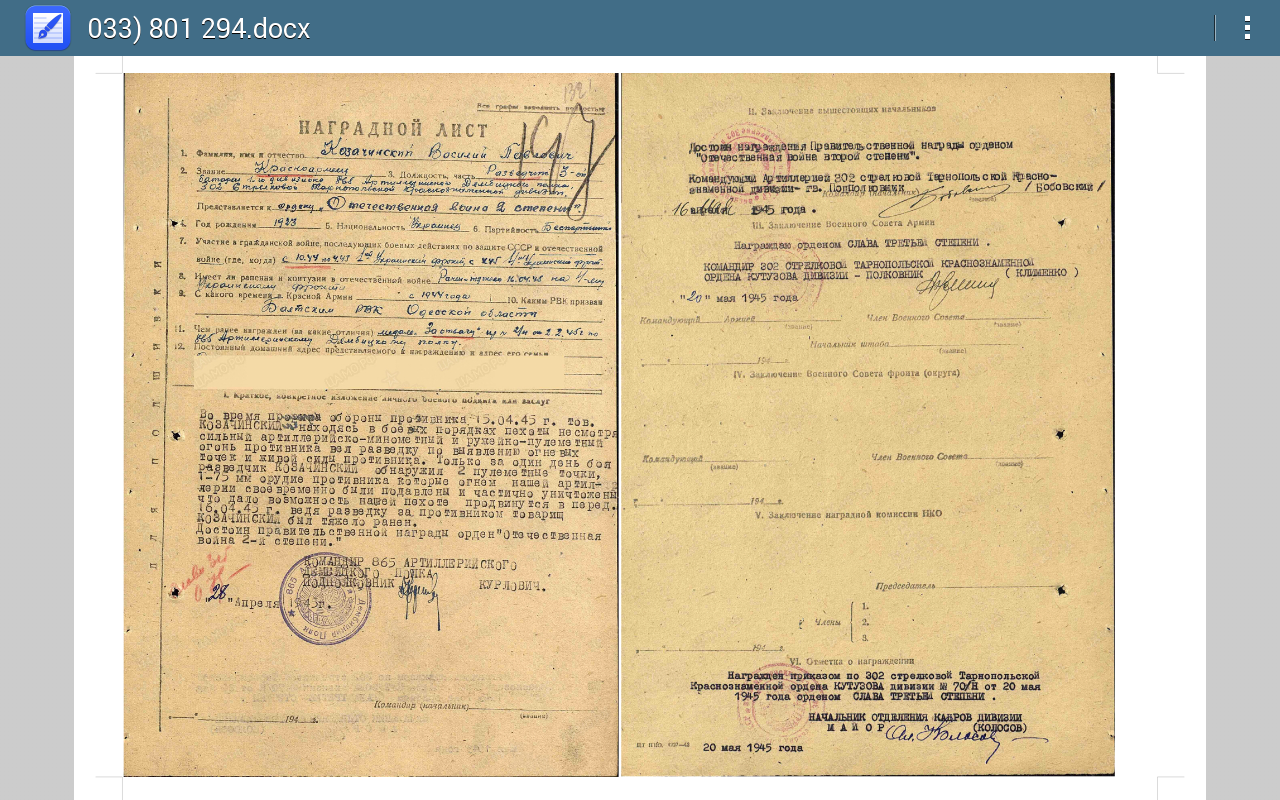 033) 801 294.docx
1321
Все графы заполнять полностью
НАГРАДНОЙ ЛИСТ
1. Фамилия, имя и отчество Козачинский Василий Павлович
2. Звание Красноармеец 3. Должность, часть Разведчик 3-ей
батареи 1-го дивизиона 865 Артиллерийского Дембицкого полка,
302 Стрелковой Тарнопольской Краснознаменной дивизии.
Представляется к ордену "Отечественной война 2 степени"
4. Год рождения 1923 5. Национальность Украинец 6. Партийность Беспартийный
7. Участие в гражданской войне, последующих боевых действиях по защите СССР и отечественной
войне (где, когда) с 10.44 по 4.45 Украинский фронт, с 2.45 Украинский фронт.
8. Имеет ли ранения и контузии в отечественной войне Ранен тяжело 16.04.45 на
Украинском фронте
9. С какого времени в Красной Армии с 1944 года 10. Каким РВК призван
РВК Одесской области
11. Чем ранее награжден (за какие отличия) медаль "За отвагу" пр. № 2/н от 2.2.45 г. по
865 Артиллерийскому Дембицкому полку.
12. Постоянный домашний адрес представляемого к награждению и адрес его семьи
I. Краткое, конкретное изложение личного боевого подвига или заслуг
Во время прорыва обороны противника 15.04.45 г. тов.
КОЗАЧИНСКИЙ находясь в боевых порядках пехоты несмотря
сильный артиллерийско-минометный и ружейно-пулеметный
огонь противника вел разведку по выявлению огневых
точек и живой силы противника. Только за один день боя
разведчик КОЗАЧИНСКИЙ обнаружил 2 пулеметные точки,
1-75 мм орудие противника которые огнем нашей артил-
лерии своевременно были подавлены и частично уничтожены
что дало возможность нашей пехоте продвинутся в перед.
16.04.45 г. ведя разведку за противником товарищ
КОЗАЧИНСКИЙ был тяжело ранен.
Достоин правительственной награды орден "Отечественная
война 2-й степени."
КОМАНДИР 865 АРТИЛЛЕРИЙСКОГО
ДЕМБИЦКОГО ПОЛКА
ПОДПОЛКОВНИК КУРЛОВИЧ.
"28" Апреля 1945г.
Командир (начальник)
(звание)
194 г.
ДЛЯ ПОДШИВКИ
II. Заключение вышестоящих начальников
Достоин награждения Правительственной награды орденом
"Отечественная война второй степени".
Командующий Артиллерией 302 стрелковой Тарнопольской Красно-
знаменной дивизии- гв. Подполковник / Бобовский /
Командир (начальник)
(звание)
16 мая 1945 года .
III. Заключение Военного Совета Армии
Награждаю орденом СЛАВА ТРЕТЬЕЙ СТЕПЕНИ .
КОМАНДИР 302 СТРЕЛКОВОЙ ТАРНОПОЛЬСКОЙ КРАСНОЗНАМЕННОЙ
ОРДЕНА КУТУЗОВА ДИВИЗИИ - ПОЛКОВНИК ( КЛИМЕНКО )
"20" мая 1945 года
Командующий Армией Член Военного Совета
(звание) (звание)
Начальник штаба
(звание)
194 г.
IV. Заключение Военного Совета фронта (округа)
Командующий Член Военного Совета
(звание) (звание)
194 г.
V. Заключение наградной комиссии НКО
Председатель
Члены
1.
2.
3.
194 г.
VI. Отметка о награждении
Награжден приказом по 302 стрелковой Тарнопольской
Краснознаменной ордена КУТУЗОВА дивизии № 70/Н от 20 мая
1945 года орденом СЛАВА ТРЕТЬЕЙ СТЕПЕНИ .
НАЧАЛЬНИК ОТДЕЛЕНИЯ КАДРОВ ДИВИЗИИ
МАЙОР (КОЛОСОВ)
20 мая 1945 года